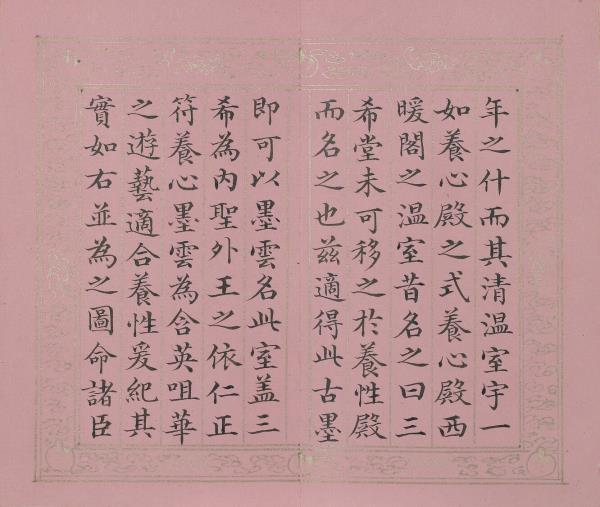 年之什而其清温室宇一
如養心殿之式養心殿西
暖閣之温室昔名之曰三
希堂未可移之於養性殿
而名之也茲適得此古墨
即可以墨雲名此室盖三
希為內聖外王之依仁正
符養心墨雲為含英咀華
之遊藝適合養性爰紀其
實如右並為之圖命諸臣